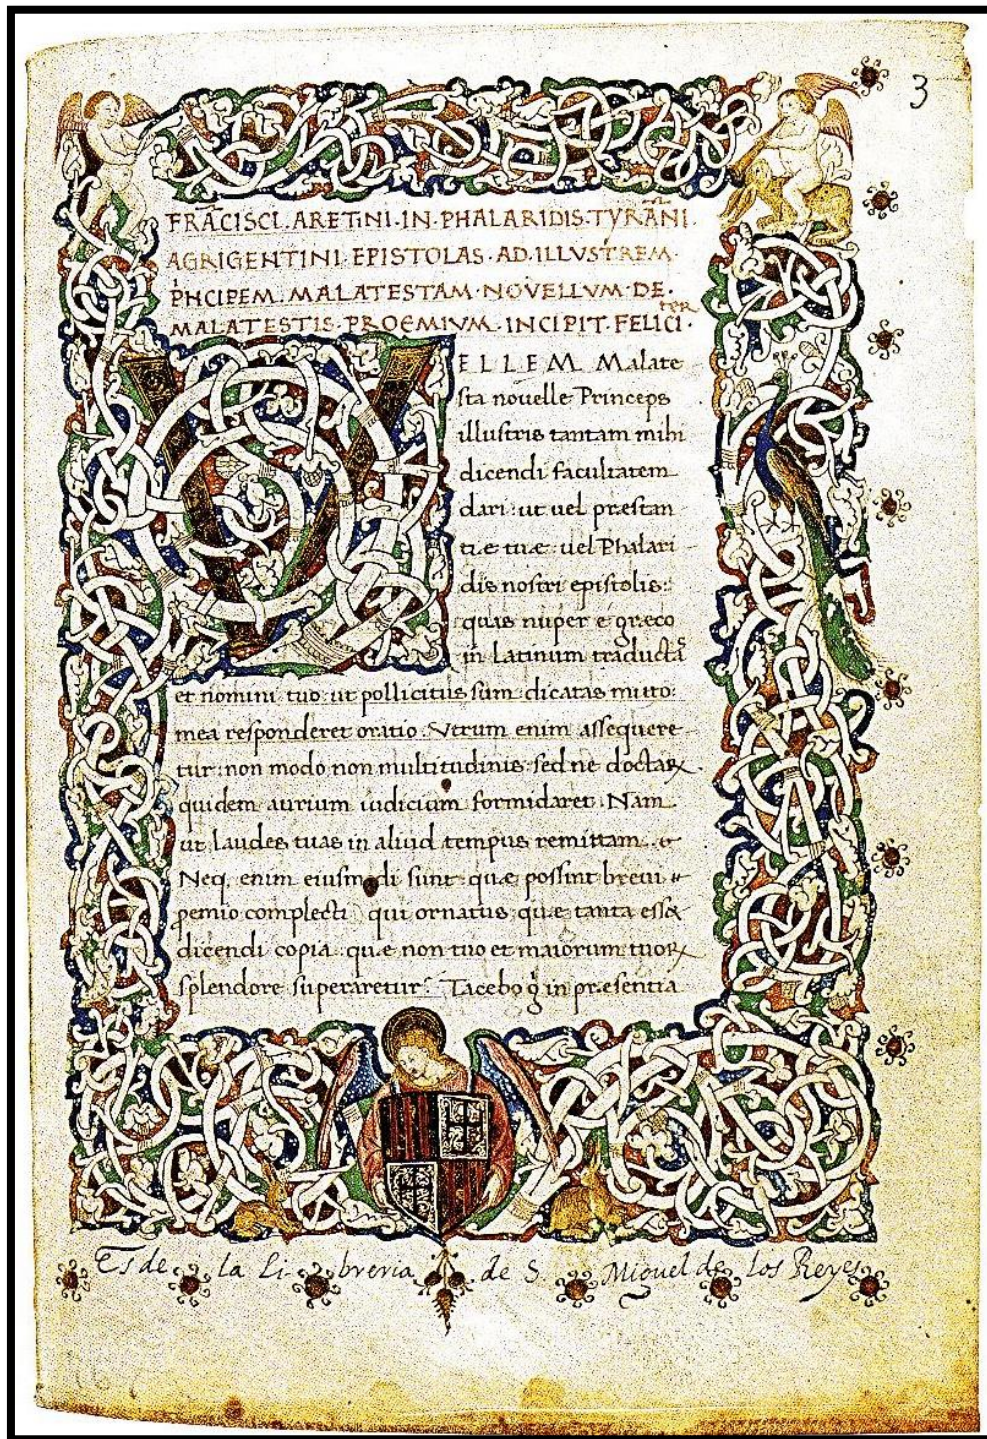 3
FRÃCISCI. ARETINI. IN. PHALARIDIS. TYRÃNI.
AGRIGENTINI. EPISTOLAS. AD. ILLVSTREM.
PNCIPEM. MALATESTAM. NOVELLVM. DE.
MALATESTIS. PROEMIVM. INCIPIT. FELICI TER.
VELLEM Malate
sta nouelle Princeps
illustris tantam mihi
dicendi facultatem
dari: ut uel præstan
tiæ tuæ: uel Phalari
dis nostri epistolis:
quas nuper e græco
in Latinum traductas
et nomini tuo: ut pollicitus sum: dicatas muto:
mea responderet oratio. Vtrum enim assequere
tur: non modo non multitudinis: sed ne doctaꝝ
quidem aurium iudicium formidaret. Nam
ut laudes tuas in aliud tempus remittam.
Neq; enim eiusmodi sunt: quæ possint breui
ꝓemio complecti: qui ornatus: quæ tanta esset
dicendi copia: quæ non tuo et maiorum tuoꝝ
splendore superaretur? Tacebo g in præsentia
Es de la Libreria de S. Miguel de los Reyes